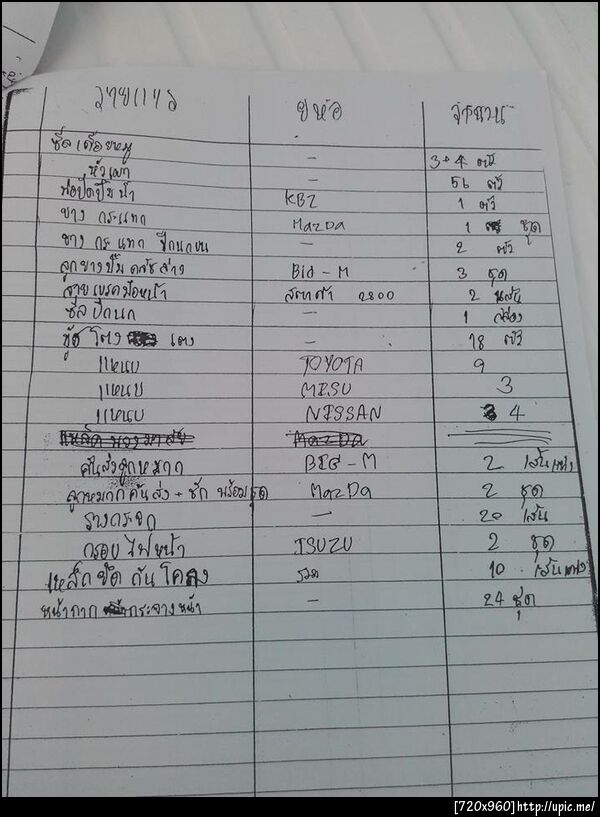 รายการ ยี่ห้อ จำนวน
ซีลเดือยหมู - 304 ตัว
หัวเผา - 56 ตัว
ท่อปิดปั๊มน้ำ KBZ 1 ตัว
ยาง กระแทก MazDa 1 ชุด
ยาง กระแทก ปีกนกบน - 2 ตัว
ลูกยางปั๊ม คลัชล่าง BiG-M 3 ชุด
สายเบรคมือหน้า สตาด้า 2800 2 เส้น
ซีลปีกนก - 1 กล่อง
บู๊ช โตงเตง - 18 ตัว
แหนบ TOYOTA 9
แหนบ MISU 3
แหนบ NISSAN 4
MazDa
คันส่งลูกหมาก BIG-M 2 เส้น
ลูกหมากคันส่ง + ชัก พร้อมชุด MazDa 2 ชุด
รางกระจก - 20 เส้น
กรอบไฟหน้า ISUZU 2 ชุด
เหล็กยึด กันโคลง รวม 10 เส้น
หน้ากาก กระจังหน้า - 24 ชุด
[720x960]http://upic.me/